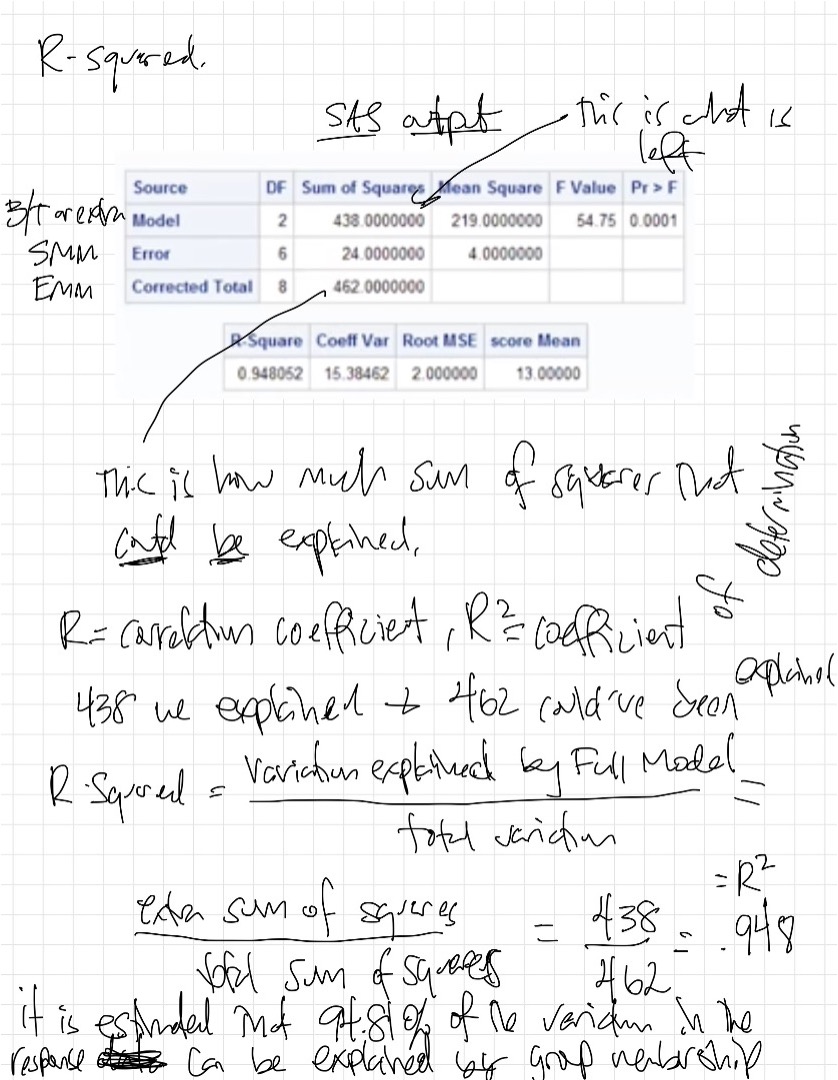 R-squared.
SAS output
this is what is
left
Source DF Sum of Squares Mean Square F Value Pr > F
B/T or extra Model 2 438.0000000 219.0000000 54.75 0.0001
SMM Error 6 24.0000000 4.0000000
EMM Corrected Total 8 462.0000000
R-Square Coeff Var Root MSE score Mean
0.948052 15.38462 2.000000 13.00000
This is how much sum of squares that
could be explained.
R = correlation coefficient, R² = coefficient of determination
438 we explained + 462 could've been explained
R-Squared = Variation explained by Full Model =
total variation
extra sum of squares = 438 = .948 = R²
total sum of squares 462
it is estimated that 94.81% of the variation in the
response can be explained by group membership